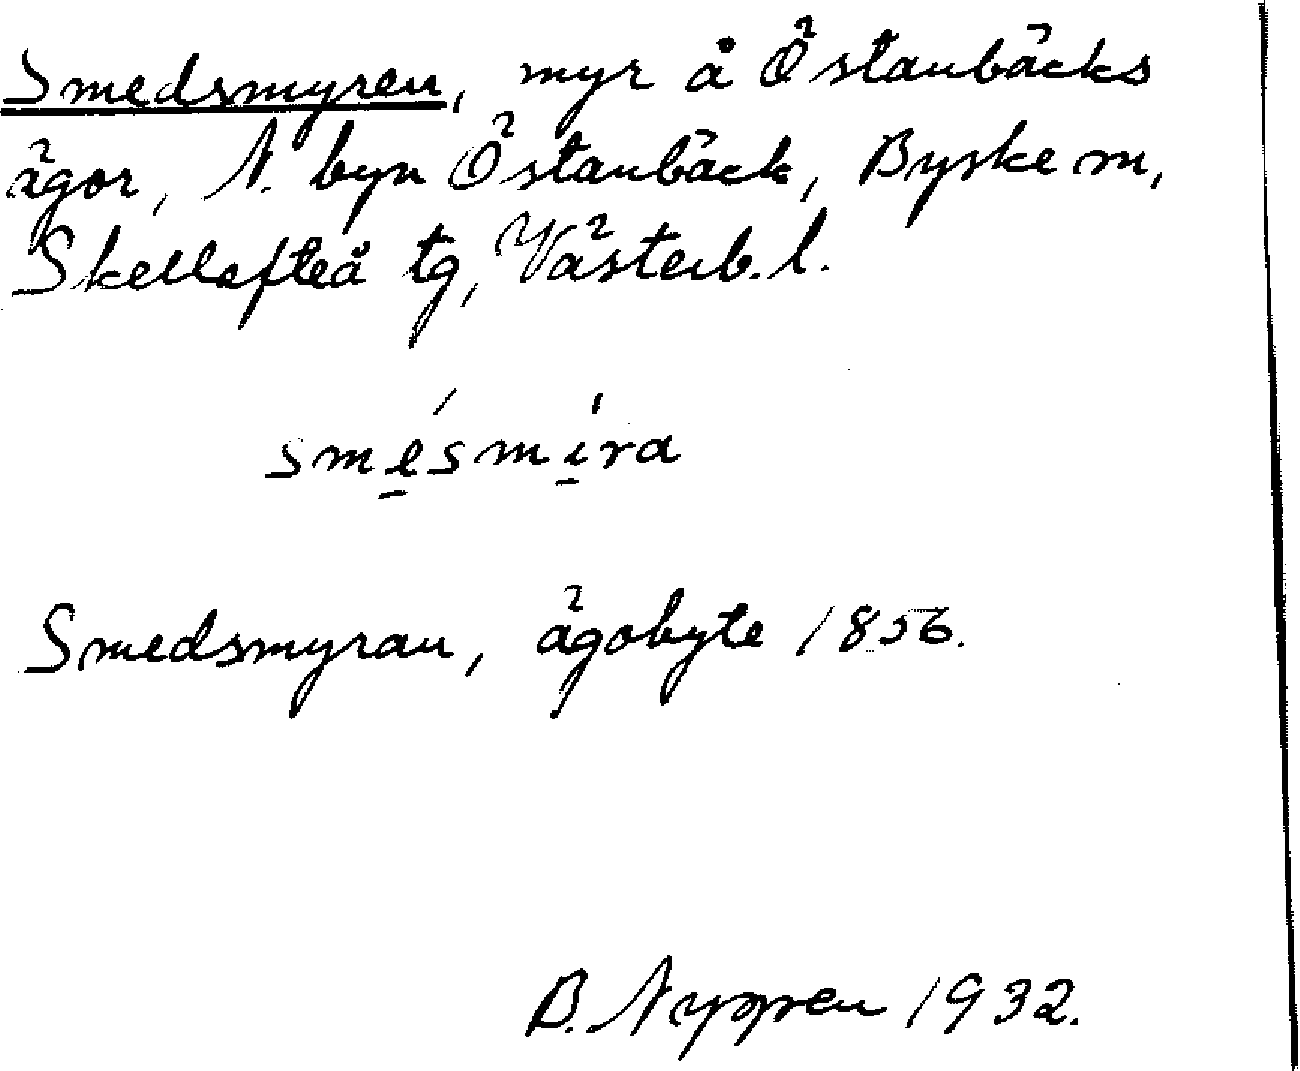 Smedsmyren, myr å Östanbäcks
ägor, N. byn Östanbäck, Byske sn,
Skellefteå tg, Västerb. l.
smésmíra
Smedsmyran, ägobyte 1856.
B. Nygren 1932.